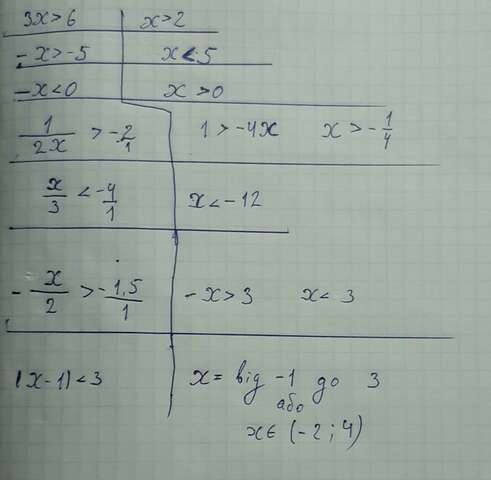 3x>6 x>2
-x>-5 x<5
-x<0 x>0
1/2x > -2/1 1>-4x x>-1/4
x/3 < -4/1 x<-12
-x/2 > -1,5/1 -x>3 x<3
|x-1|<3 x= від -1 до 3
або
x∈(-2;4)